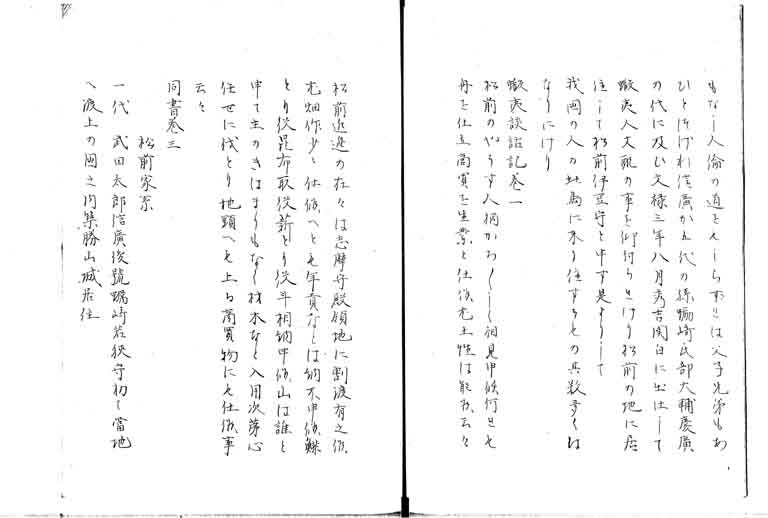 もなし人倫の道をもしらされは父子兄弟もあ
ひとしけれ信廣か五代の孫蠣崎民部大輔慶廣
の代に及ひ文禄三年八月秀吉関白に出仕して
蝦夷人支配の事を仰付らせけり松前の地に居
住して松前伊豆守と申す是よりして
我国の人の此島に来り住するもの其数多くは
なりにけり
蝦夷談話記巻一
松前のやうす人柄かろ〱しく相見申候何も
舟を仕立商買を生業と仕候尤土性は能候云々
松前近辺の在々は志摩守殿領地に割渡有之候
尤畑作少々仕候へとも年貢なとは納不申候鰊
とり役昆布取役薪とり役斗相納申候山は誰と
申て主のきはまりもなく材木なと入用次第心
任せに伐とり地頭へも上る商買物にも仕候事
云々
同書巻三
松前家系
一代 武田太郎信廣後號蠣崎若狭守初て當地
へ渡上の国之内集勝山城居住